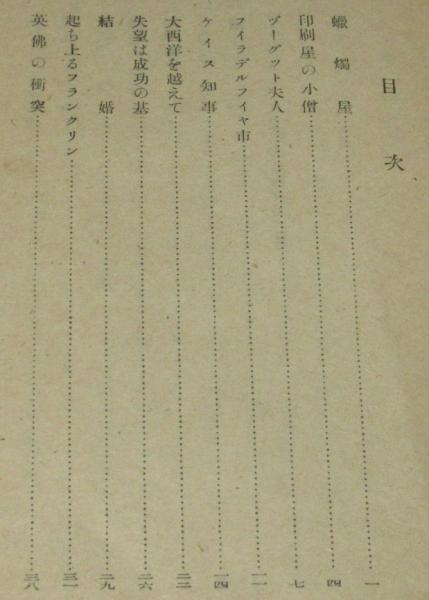 目次
蠟燭屋……一
印刷屋の小僧……四
ヅーグット夫人……七
フイラデルフイヤ市……一一
ケイス知事……一四
大西洋を越えて……二三
失望は成功の基……二六
結婚……二九
起ち上るフランクリン……三一
英佛の衝突……三八